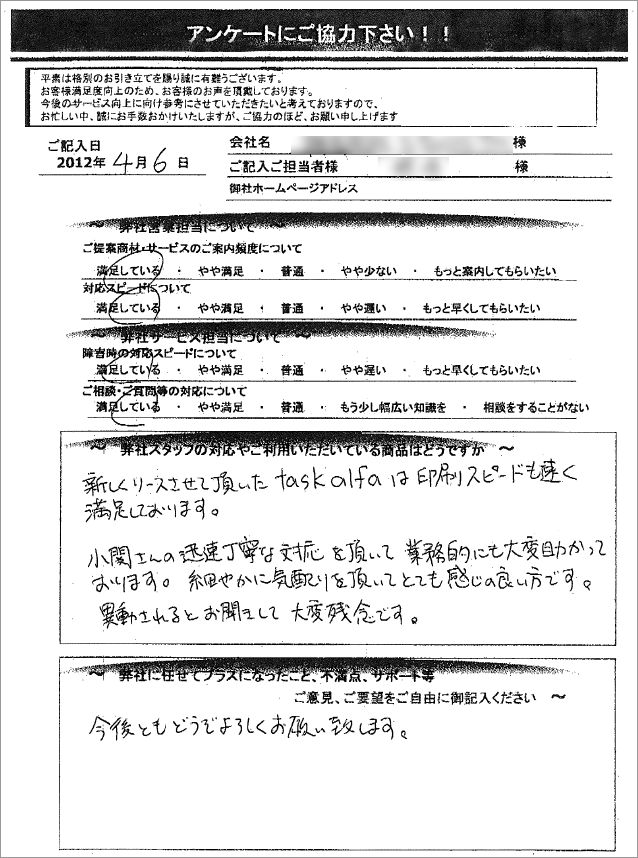 アンケートにご協力下さい！！
平素は格別のお引き立てを賜り誠に有難うございます。
お客様満足度向上のため、お客様のお声を頂戴しております。
今後のサービス向上に向け参考にさせていただきたいと考えておりますので、
お忙しい中、誠にお手数おかけいたしますが、ご協力のほど、お願い申し上げます
ご記入日
2012年 4月 6日
会社名 様
ご記入ご担当者様 様
御社ホームページアドレス
～ 弊社営業担当について ～
ご提案商材・サービスのご案内頻度について
満足している ・ やや満足 ・ 普通 ・ やや少ない ・ もっと案内してもらいたい
対応スピードについて
満足している ・ やや満足 ・ 普通 ・ やや遅い ・ もっと早くしてもらいたい
～ 弊社サービス担当について ～
障害時の対応スピードについて
満足している ・ やや満足 ・ 普通 ・ やや遅い ・ もっと早くしてもらいたい
ご相談・ご質問等の対応について
満足している ・ やや満足 ・ 普通 ・ もう少し幅広い知識を ・ 相談をすることがない
～ 弊社スタッフの対応やご利用いただいている商品はどうですか ～
新しくリースさせて頂いた task alfa は 印刷スピードも速く
満足しております。
小関さんの迅速丁寧な対応を頂いて 業務的にも大変助かって
おります。細やかに気配りを頂いてとても感じの良い方です。
異動されるとお聞きして 大変残念です。
～ 弊社に任せてプラスになったこと、不満点、サポート等
ご意見、ご要望をご自由に御記入ください ～
今後ともどうぞよろしくお願い致します。